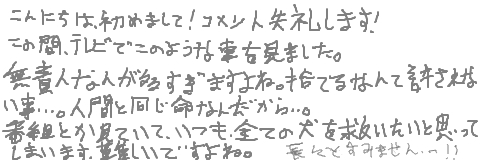 こんにちは、初めまして！コメント失礼します！
この間、テレビでこのような事を見ました。
無責人な人が多すぎますよね。捨てるなんて許されな
い事…。人間と同じ命なんだから…。
番組とか見ていて、いつも、全ての犬を救いたいと思って
しまいます。難しいですよね。 長々とすみません…っ!!